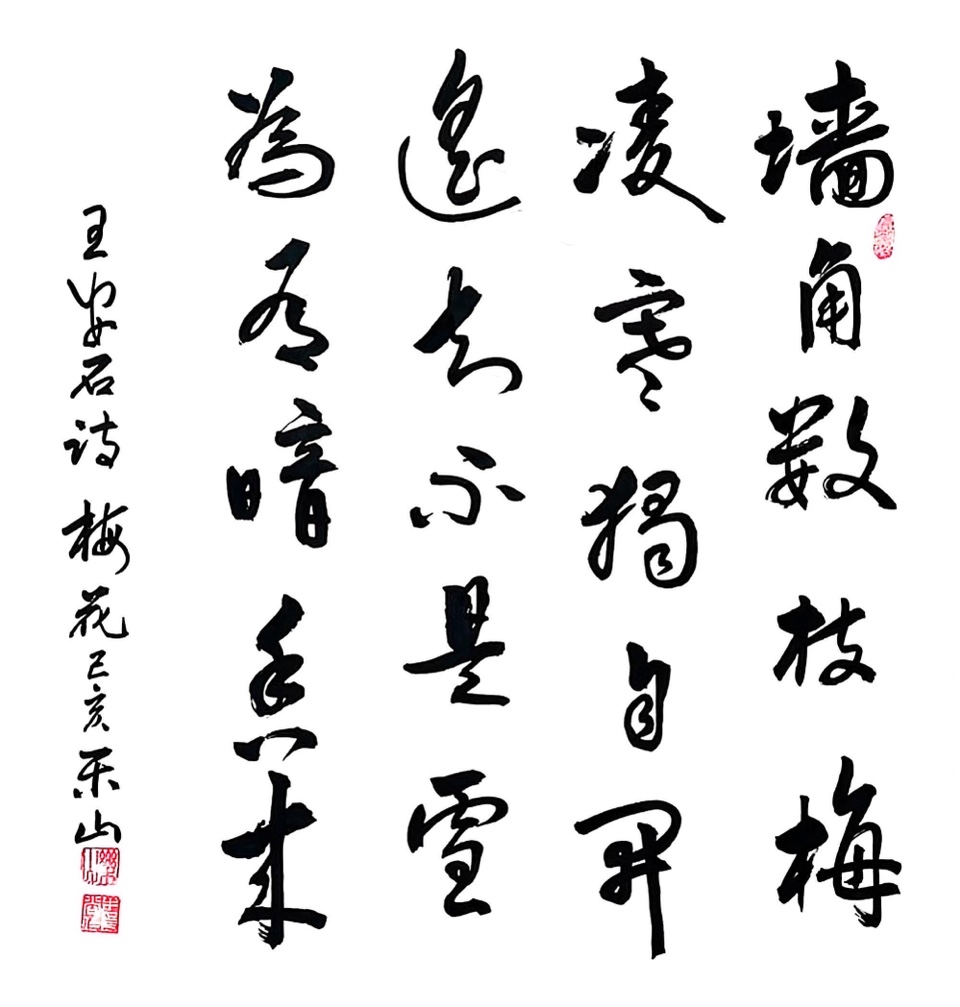 墙角数枝梅
凌寒獨自開
遙知不是雪
為有暗香来
王安石诗梅花己亥乐山